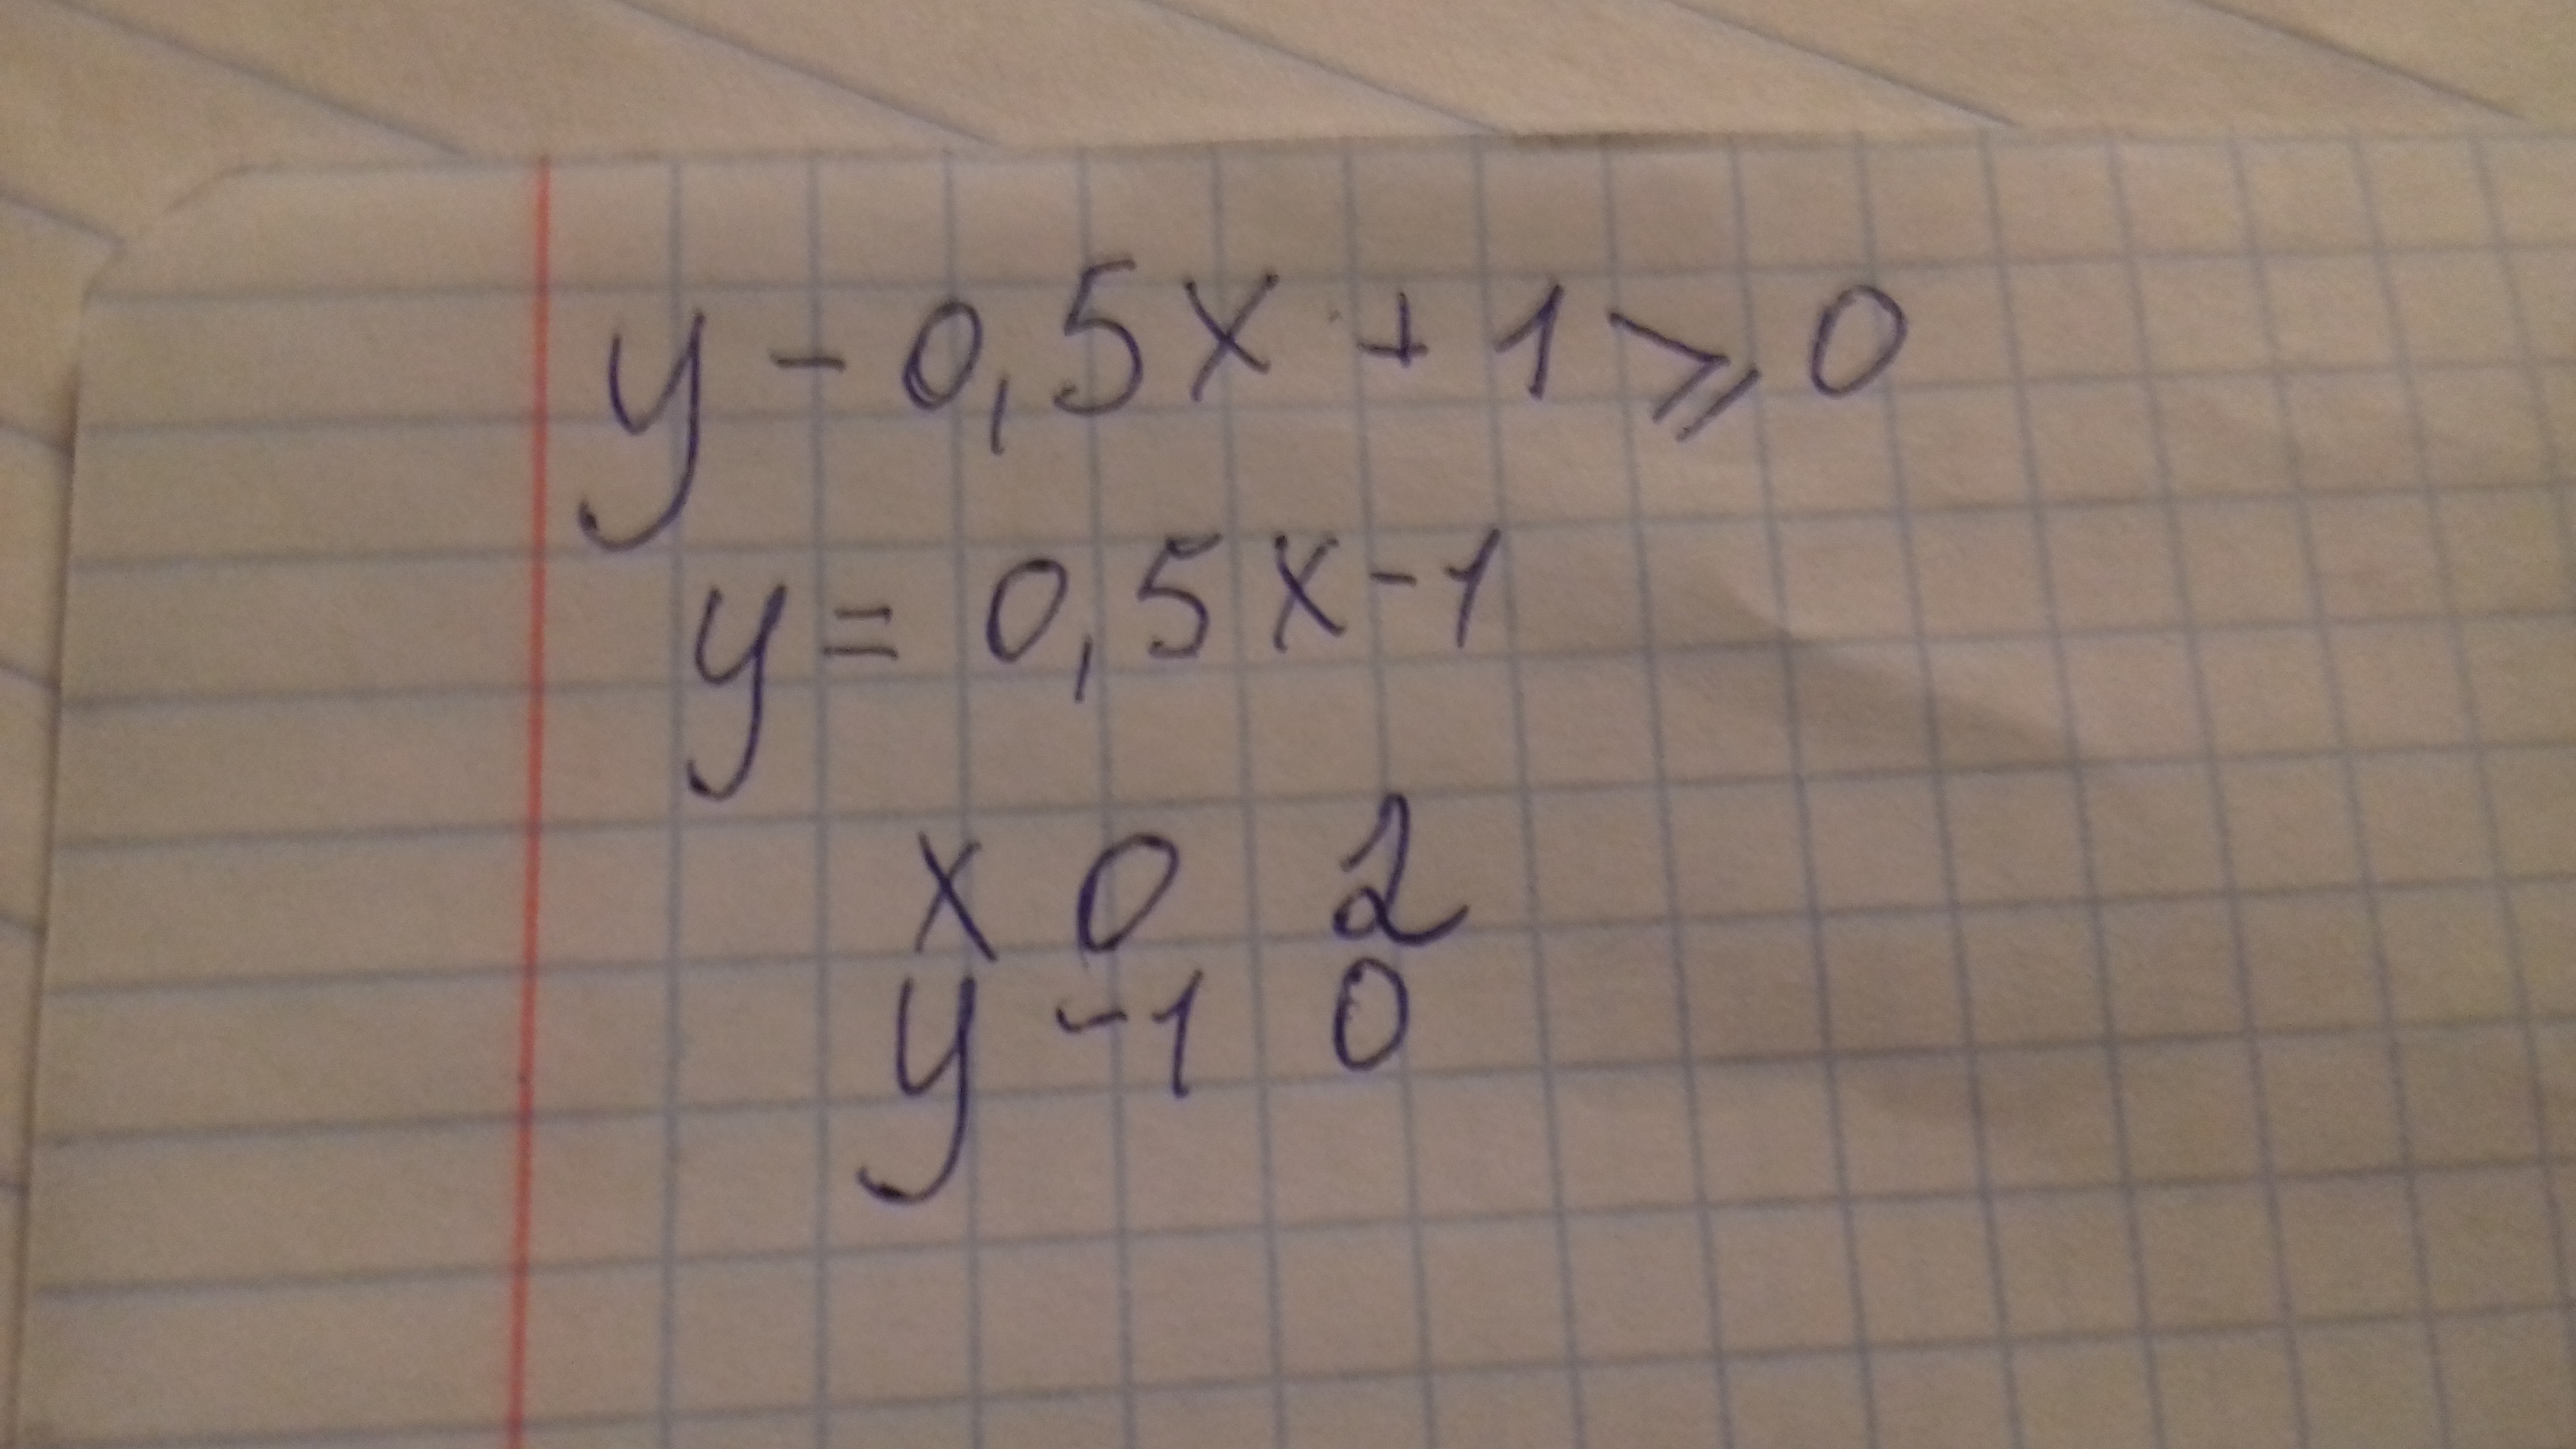 y - 0,5x + 1 ⩾ 0
y = 0,5x - 1
x 0 2
y -1 0